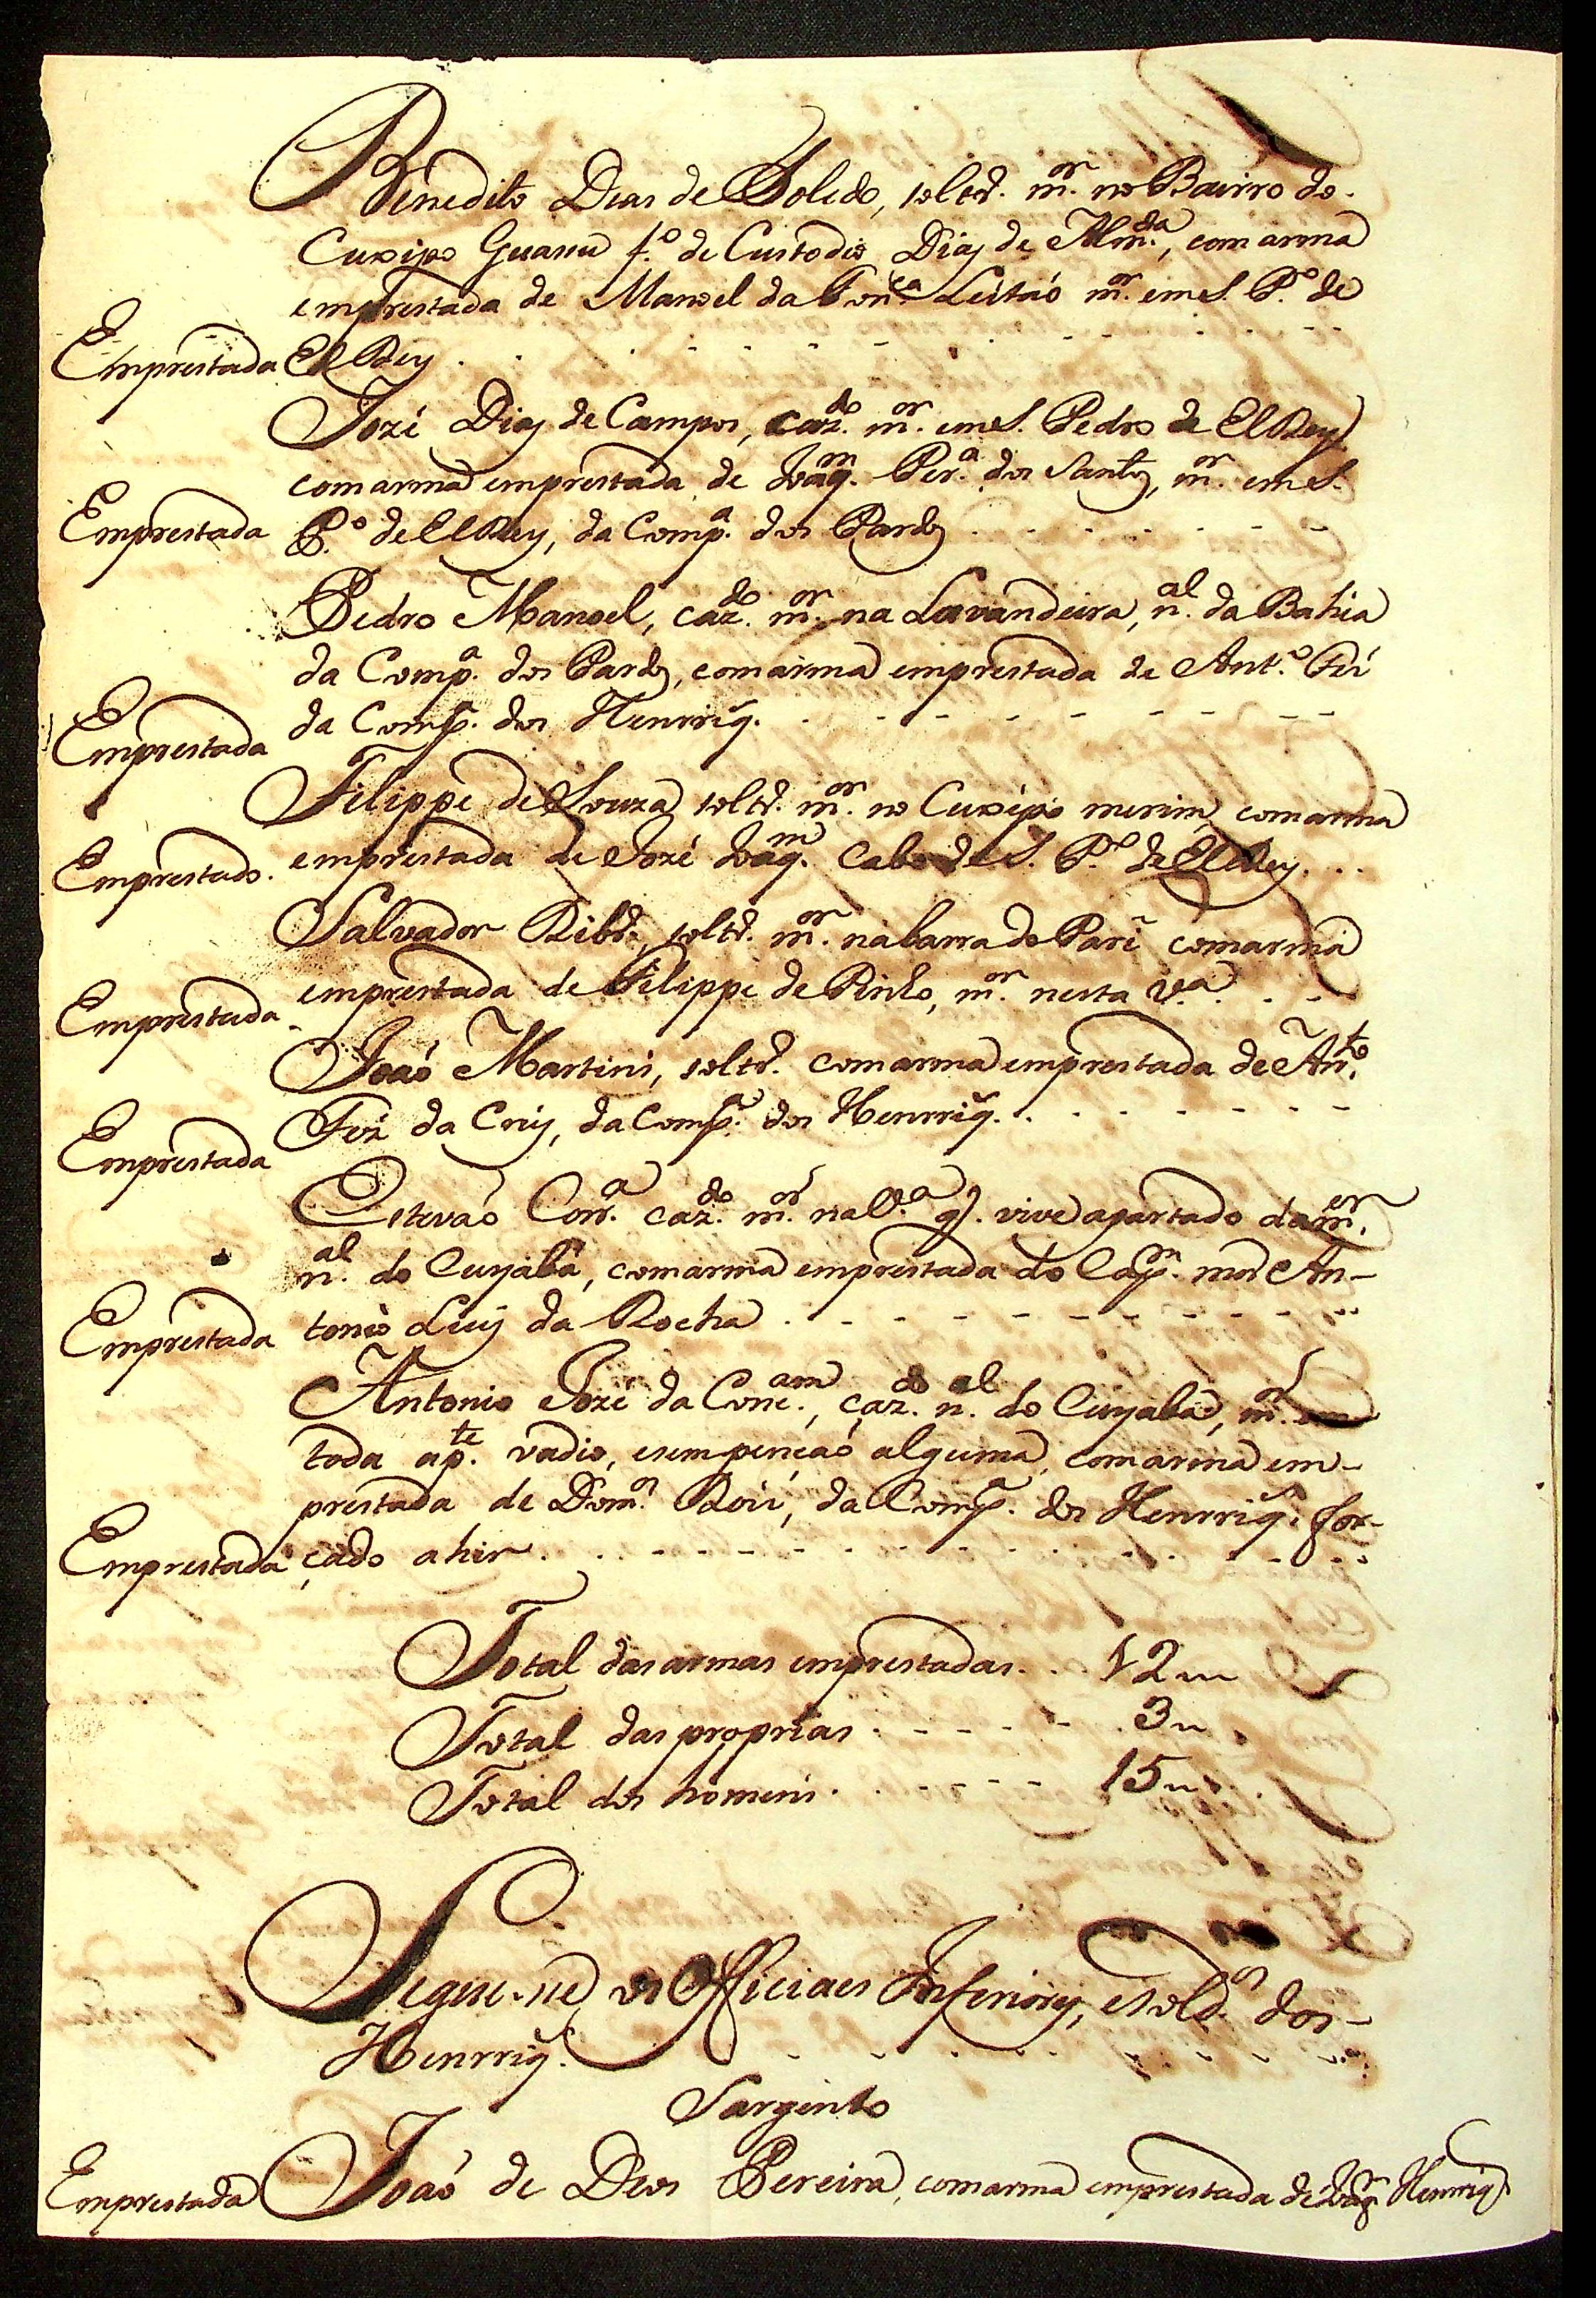 Benedito Dias de Toledo, soltr.º m.or no Bairro do
Cuxipo Guassu f.º de Custodio Dias de Alm.da, com arma
emprestada de Manoel da Fon.ca Leitaõ m.or em S. P.º de
Emprestada El Rey
Jozé Dias de Campos, caz.do m.or em S. Pedro de El Rey
com arma emprestada de Joaq.m Per.a dos Santos, m.or em S.
Emprestada P.º de El Rey, da Comp.a dos Pardos
Pedro Manoel, caz.do m.or na Lavandeira, n.al da Bahia
da Comp.a dos Pardos, com arma emprestada de Ant.º
Emprestada da Comp.a dos Henrriq.s
Filippe de Souza soltr.º m.or no Cuxipo merim, com arma
Emprestado. emprestada de Jozé Joaq.m Cabo de S. P.º de El Rey.
Salvador Ribr.º, soltr.º m.or na barra do Pari com arma
Emprestada emprestada de Filippe de Pinho, m.or nesta V.a
Joaõ Martins, soltr.º com arma emprestada de An.to
Emprestada da Cruz, da Comp.a dos Henrriq.s
Estevaõ Corr.a caz.do m.or na V.a q. vive apartado da m.er
n.al do Cuyabá, com arma emprestada do Cap.m mor An-
Emprestada tonio Luiz da Rocha
Antonio Jozé da Conc.am, caz.do n.al do Cuyabá, m.or em
toda a p.te vadio, e sem pencaõ alguma, com arma em-
prestada de Dom.os Roiz, da Comp.a dos Henrriq.s for-
Emprestada çado a hir
Total das armas emprestadas 12
Total das proprias 3
Total dos homens 15
Segue-se os Officiaes Inferiores, e sold.os dos
Henrriq.s
Sargento
Emprestada Joaõ de Deos Pereira, com arma emprestada de Joaq.m Henriq.s